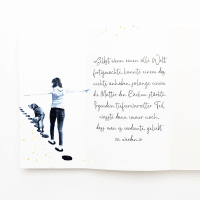 »Selbst wenn einen alle Welt
fortgeschickt, konnte einem das
nichts anhaben, solange einem
die Mutter den Rücken stärkte.
Irgendein tiefverwurzelter Teil
wusste dann immer noch,
dass man es verdiente, geliebt
zu werden.«